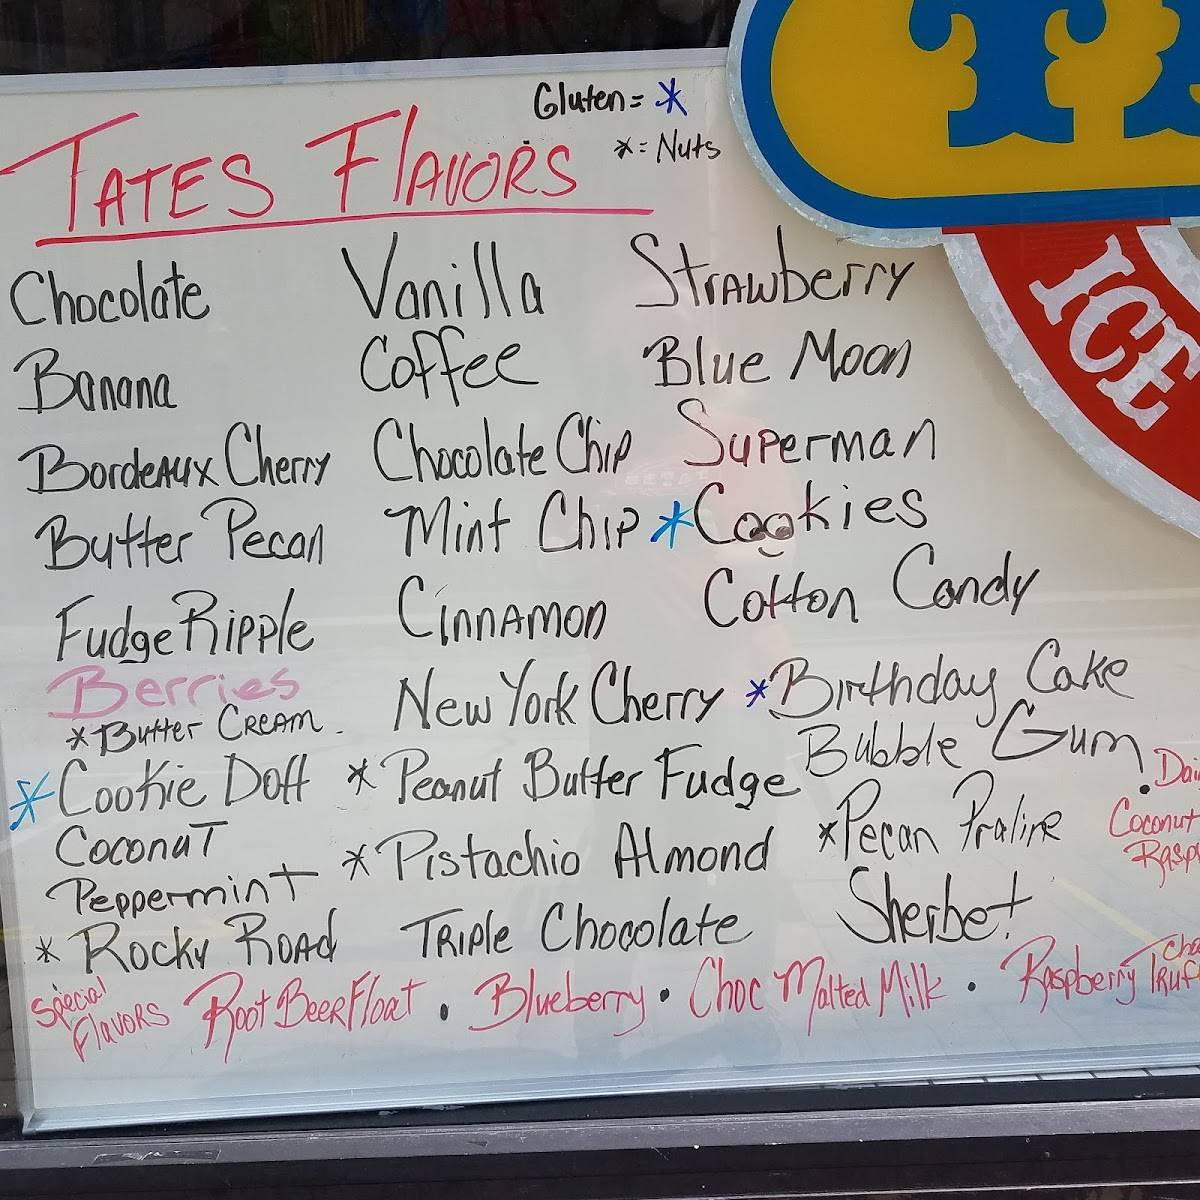 Gluten = *
* = Nuts
TATES FlAVORS
Chocolate Vanilla Strawberry
Banana Coffee Blue Moon
Bordeaux Cherry Chocolate Chip Superman
Butter Pecan Mint Chip *Cookies
Fudge Ripple Cinnamon Cotton Candy
Berries New York Cherry *Birthday Cake
*Butter Cream Bubble Gum
*Cookie Doff *Peanut Butter Fudge
Coconut *Pistachio Almond *Pecan Praline
Peppermint
*Rocky Road Triple Chocolate Sherbet
Special Flavors Root Beer Float • Blueberry • Choc Malted Milk • Raspberry
Coconut
ICE